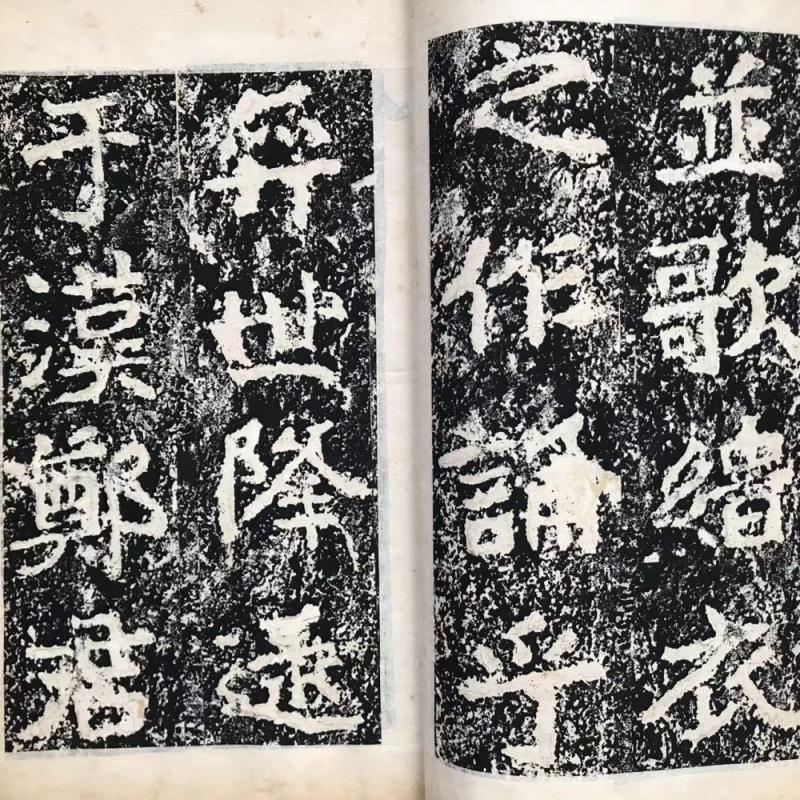 並歌緇衣
之作誦乎
弈世降逮
于漢鄭君